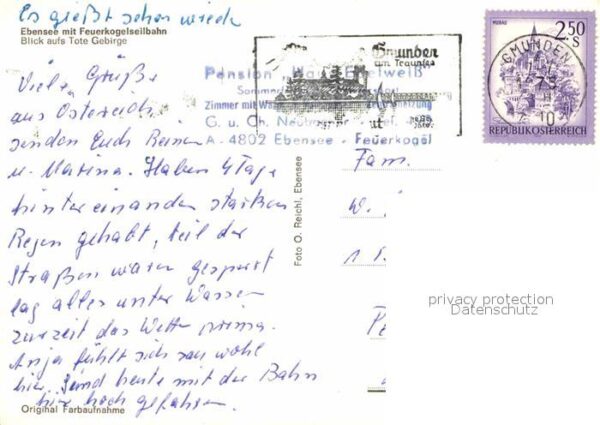 Es gießt schon wieder
Ebensee mit Feuerkogelseilbahn
Blick aufs Tote Gebirge
Viele Grüße
aus Österreich
senden Euch
u. Marina. Haben 4 Tage
hintereinander starken
Regen gehabt, teil der
Straßen waren gesperrt
lag alles unter Wasser
zurzeit das Wetter prima.
Anja fühlt sich sau wohl
hier. Sind heute mit der Bahn
hier hoch gefahren.
Original Farbaufnahme
Foto O. Reichl, Ebensee
Gmunden
am Traunsee
Pension "Haus Edelweiß"
Zimmer mit
G. u. Ch.
A - 4802 Ebensee - Feuerkogel
GMUNDEN
2.50
S
MURAU
REPUBLIK ÖSTERREICH
Fam.
W.
privacy protection
Datenschutz